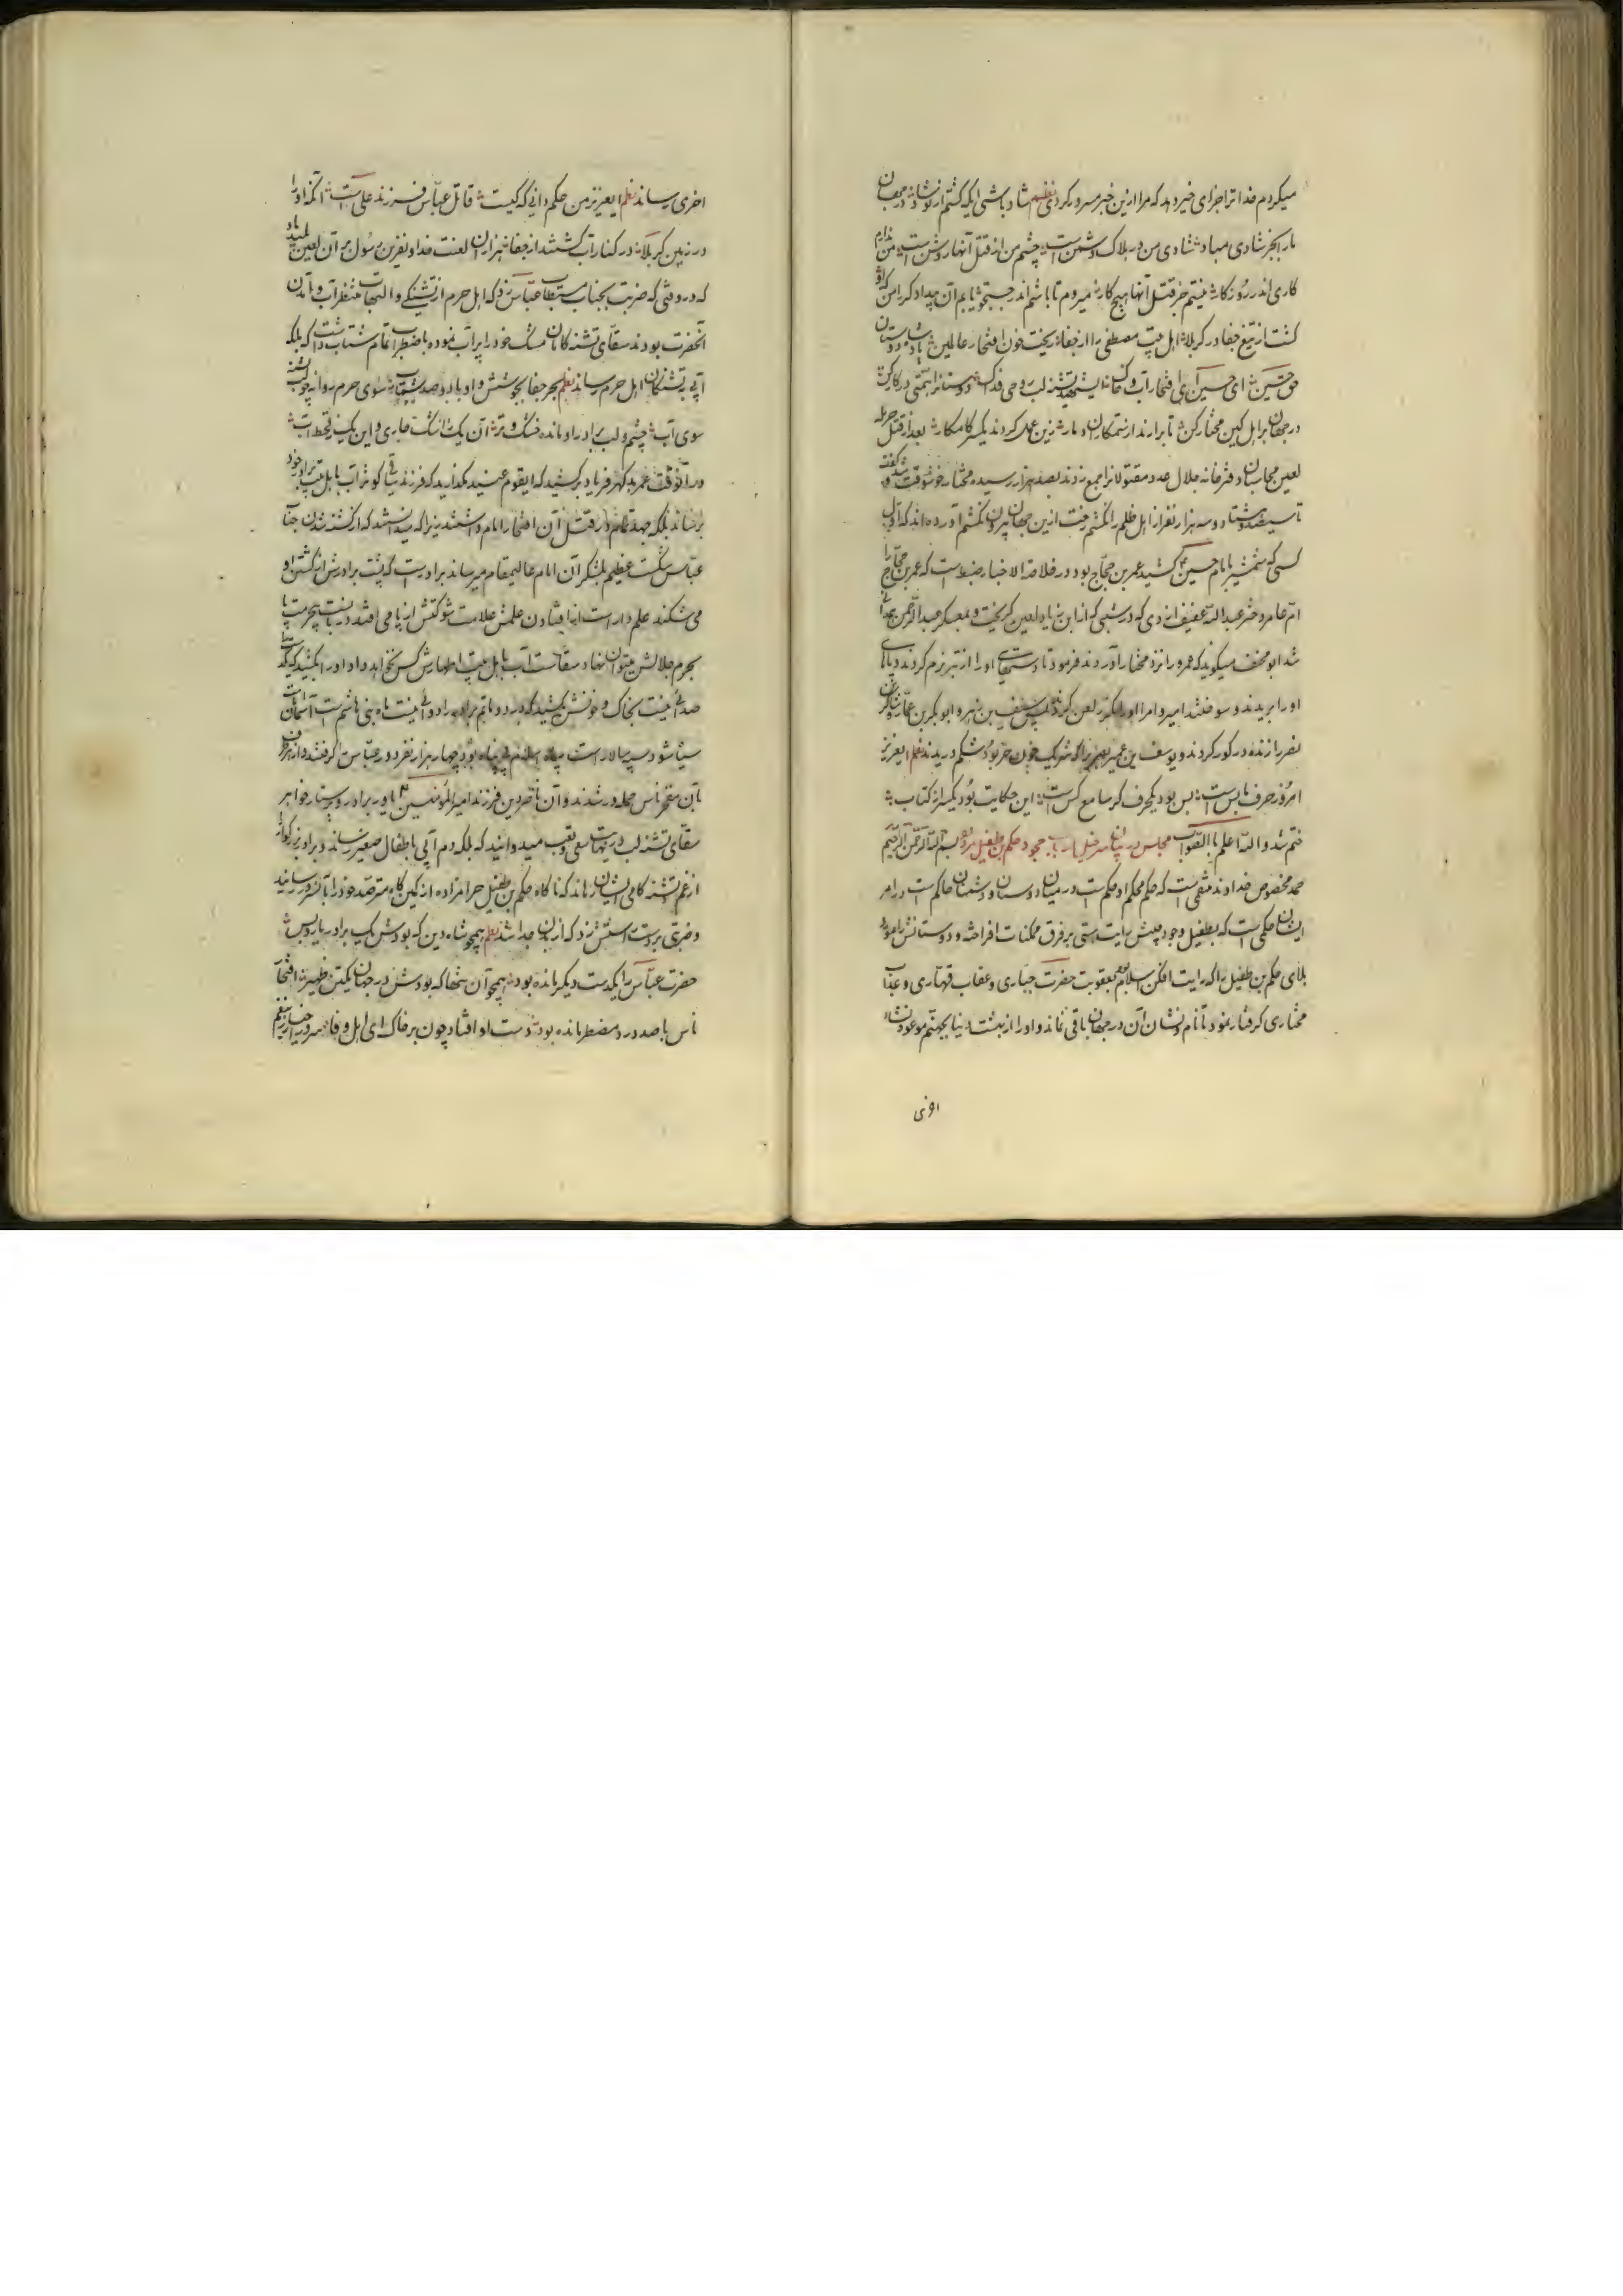 میکردم خدا ترا جزای خیر دهد که مرا ازین خبر مسرور کردی نظم شاد باشی ایکه گفتم از تو شاد در جهان
مارا بجز شادی مباد شادی من در هلاک دشمن است چشم من از قتل آنها روشن است من ندارم
کاری اندر روزگار نیستم جز قتل آنها هیچ کار میروم تا باشم اندر جستجو یابم آن بیدادگر را من که او
کشت از تیغ جفا در کربلا اهل بیت مصطفی را از جفا ریخت خون افتخار عالمین پادشاه دوستان
حق حسین ای حسین ای افتخار آب و خاک ای شهید تشنه لب روحی فداک دوستانرا همتی در کار کن
در جهان بر اهل کین مختار کن تا برارند از ستمکاران دمار زین عمل کردند یکسر کامکار بعد از قتل حرمله
لعین محاسبان دفترخانه جلال عدد مقتولانرا جمع زدند بصد هزار رسیده مختار خوشوقت شد گفت
تا سیصد و هشتاد و سه هزار نفر از اهل ظلم را نکشم رخت ازین جهان بیرون نکشم آورده اند که اول
کسی که شمشیر بامام حسین کشید عمر بن حجاج بود و در خلاصة الاخبار ضبط است که عمر بن حجاج را
ام عامر دختر عبدالله عفیف ازدی که در شبی که از ابن زیاد لعین گریخت و بمعسکر عبدالرحمن همدانی
شد ابو مخنف میگوید که عمرو را نزد مختار آوردند فرمود تا دستهای او را از تیر نرم کردند و پاهای
او را بریدند و سوختند امیر و امرا او را مکرر لعن کردند پس
نفر را زنده در گور کردند و یوسف بن عمیر را که شریک خون حر بود شکم دریدند نظم ایعزیز
امروز حرف ما بس است بس بود یکحرف گر سامع کس است این حکایت بود یکسر از کتاب
ختم شد والله اعلم بالصواب مجلس در بیان حکم بن طفیل مردود بسم الله الرحمن الرحیم
حمد مخصوص خداوند متقی است که حکم محکم او حکم است در میان دوستان و دشمنان حاکم است در امر
ایشان حکمی است که بطفیل وجود پیش رایت هستی بر فرق ممکنات افراخته و دوستانش را مورد
بلای حکم بن طفیل را که رایت افکن اسلام بود بعقوبت حضرت جباری و عقاب قهاری و عذاب
مختاری گرفتار نمود تا نام و نشان آن در جهان باقی نماند و او را از بهشت دنیا بجهنم موعود
اخری
اخری رساند نظم ایعزیز من حکم دانی که کیست قاتل عباس فرزند علی است آنکه او را
در زمین کربلا در کنار آب کشتند از جفا هزاران لعنت خدا و نفرین رسول بر آن لعین پلید باد
که در وقتی که ضربت بجناب مستطاب عباس زد که اهل حرم از تشنگی و التهاب منتظر آب و آمدن
آنحضرت بودند سقای تشنه کامان مشک خود را پر آب نموده باضطراب تمام شتاب داشت که بلکه
آبی به تشنگان اهل حرم رساند نظم بحر جفا بجوشش و او با دو صد شتاب سوی حرم روانه چو لب تشنه
سوی آب چشم و لب برادر او مانده خشک و تر آن یک ز اشک جاری و این یک ز قحط آب
در آنوقت عمر بد گهر فریاد برکشید که ایقوم عنید مگذارید که فرزند ساقی کوثر آب باهل بیت برادر خود
برساند بلکه جهد تمام در قتل آن افتخار انام داشتند زیرا که میدانستند که از کشته شدن جناب
عباس شکست عظیم بلشکر آن امام عالیمقام میرساند برادر است که پشت برادرش از کشتن او
می شکند علمدار است از افتادن علمش علامت شوکتش از پا می افتد دربانست بیحرمت پا
بحرم جلالش میتوان نهاد سقاست آب باهل بیت اطهارش کس نخواهد داد او را بکشید که یکه
بخاک و خونش بکشید که درد ماتم برادر را دوائی نیست ماه بنی هاشم است آسمان
سپه سالار است چهار هزار نفر دور عباس را گرفتند و از هر طرف
بآن مفخر ناس حمله ور شدند و آن ناصر دین فرزند امیرالمؤمنین یاور برادر و پرستار خواهر
سقای تشنه لب در نهایت سعی و تعب میدوانید که بلکه دم آبی باطفال صغیر رساند و برادر بزرگوار را
از غم تشنه کامی ایشان رهاند که ناگاه حکم بن طفیل حرامزاده از کمین گاه مترصد خود را بآن سرور رسانید
و ضربتی بر دست راستش زد که از بدن جدا شد نظم همچو شاه دین که بودش یک برادر یار و بس
حضرت عباس را یکدست دیگر مانده بود همچو آن شه که بودش در جهان یکتن ظهیر افتخار
ناس با صد درد مضطر مانده بود دست او افتاد چون بر خاک ای اهل وفا